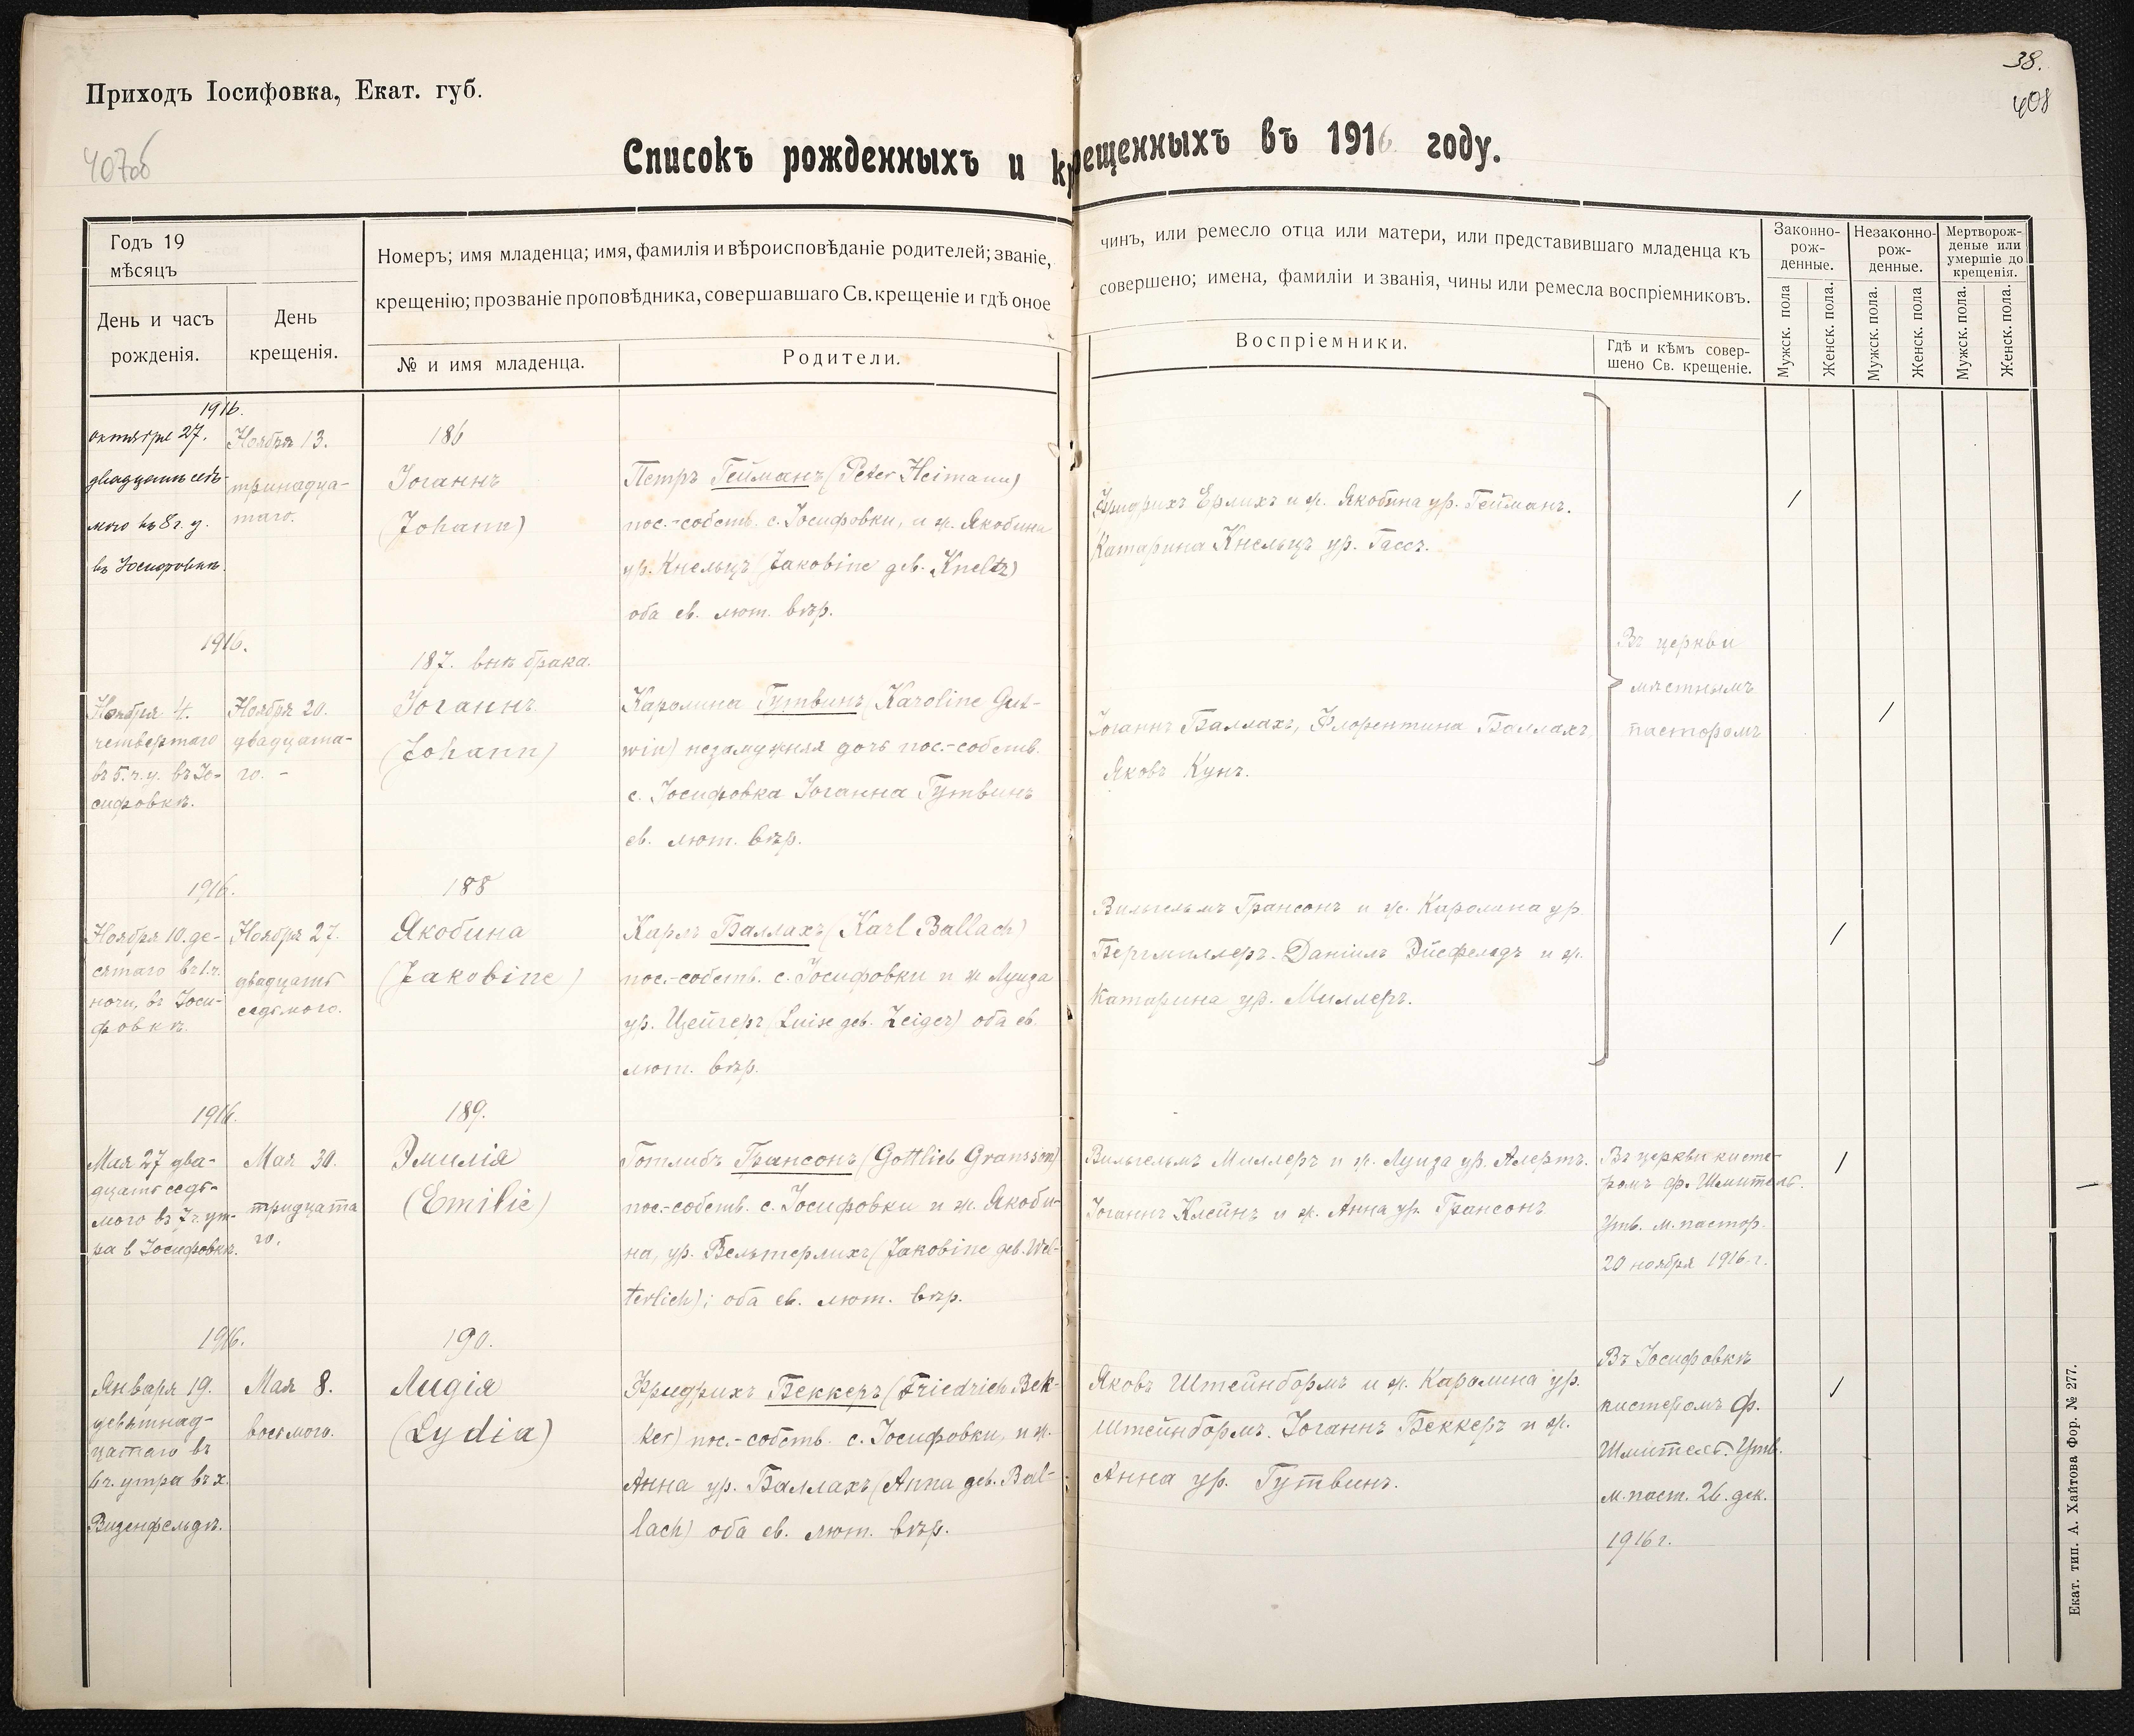 38.
408
Приходъ Іосифовка, Екат. губ.
407об
Списокъ рожденныхъ и крещенныхъ въ 1916 году.
Годъ 19
мѣсяцъ
День и часъ
рожденія.
День
крещенія.
Номеръ; имя младенца; имя, фамилія и вѣроисповѣданіе родителей; званіе,
крещенію; прозваніе проповѣдника, совершавшаго Св. крещеніе и гдѣ оное
№ и имя младенца.
Родители.
чинъ, или ремесло отца или матери, или представившаго младенца къ
совершено; имена, фамиліи и званія, чины или ремесла воспріемниковъ.
Воспріемники.
Гдѣ и кѣмъ совер-
шено Св. крещеніе.
Законно-
рож-
денные.
Незаконно-
рож-
денные.
Мертворож-
деные или
умершіе до
крещенія.
Мужск. пола
Женск. пола.
Мужск. пола.
Женск. пола
Мужск. пола.
Женск. пола.
1916.
октября 27.
двадцать седь-
мого въ 8 г. у.
въ Іосифовкѣ.
Ноября 13.
тринадца-
таго.
186
Іоганнъ
(Johann)
Петръ Гейманъ (Peter Heimann)
пос.-собств. с. Іосифовки, и ж. Якобина
ур. Кнельцъ (Jakobine geb. Kneltz)
оба ев. лют. вѣр.
Фридрихъ Ерлихъ и ж. Якобина ур. Гейманъ.
Катарина Кнельцъ ур. Гассъ.
/
Въ церкви
мѣстнымъ
пасторомъ
1916.
Ноября 4.
четвертаго
въ 5. ч. у. въ Іо-
сифовкѣ.
Ноября 20.
двадцата-
го. -
187. внѣ брака.
Іоганнъ
(Johann)
Каролина Гутвинъ (Karoline Gut-
win) незамужняя дочь пос.-собств.
с. Іосифовка Іоганна Гутвинъ
ев. лют. вѣр.
Іоганнъ Баллахъ, Флорентина Баллахъ,
Яковъ Кунъ.
/
1916.
Ноября 10. де-
сятаго въ 1. ч.
ночи, въ Іоси-
фовкѣ.
Ноября 27.
двадцать
седьмого.
188
Якобина
(Jakobine)
Карлъ Баллахъ (Karl Ballach)
пос.-собств. с. Іосифовки и ж Луиза
ур. Цейгеръ (Luise geb. Zeiger) оба ев.
лют. вѣр.
Вильгельмъ Грансонъ и ж. Каролина ур.
Бергмиллеръ. Даніилъ Эйсфельдъ и ж.
Катарина ур. Миллеръ.
/
1916.
Мая 27 два-
дцать седь-
мого въ 7 ч. ут-
ра в Іосифовкѣ.
Мая 30.
тридцата
го.
189.
Эмилія
(Emilie)
Готлибъ Грансонъ (Gottlieb Gransson)
пос.-собств. с. Іосифовки и ж. Якоби-
на, ур. Вельтерлихъ (Jakobine geb. Wel-
terlich); оба ев. лют. вѣр.
Вильгельмъ Миллеръ и ж. Луиза ур. Алертъ.
Іоганнъ Клейнъ и ж. Анна ур. Грансонъ
Въ церкви кисте-
ромъ ф. Шмитель.
Утв. м. пастор.
20 ноября 1916 г.
/
1916.
Января 19.
девятнад-
цатаго въ
6 ч. утра въ х.
Визенфельдъ.
Мая 8.
восьмого.
190.
Лидія
(Lydia)
Фридрихъ Беккеръ (Friedrich Bek-
ker) пос.-собств. с. Іосифовки, и ж.
Анна ур. Баллахъ (Anna geb. Bal-
lach) оба ев. лют. вѣр.
Яковъ Штейнбормъ и ж. Каролина ур.
Штейнбормъ. Іоганнъ Беккеръ и ж.
Анна ур. Гутвинъ.
Въ Іосифовкѣ
кистеромъ ф.
Шмитель. Утв.
м. паст. 26. дек.
1916 г.
/
Екат. тип. А. Хайтова Фор. № 277.